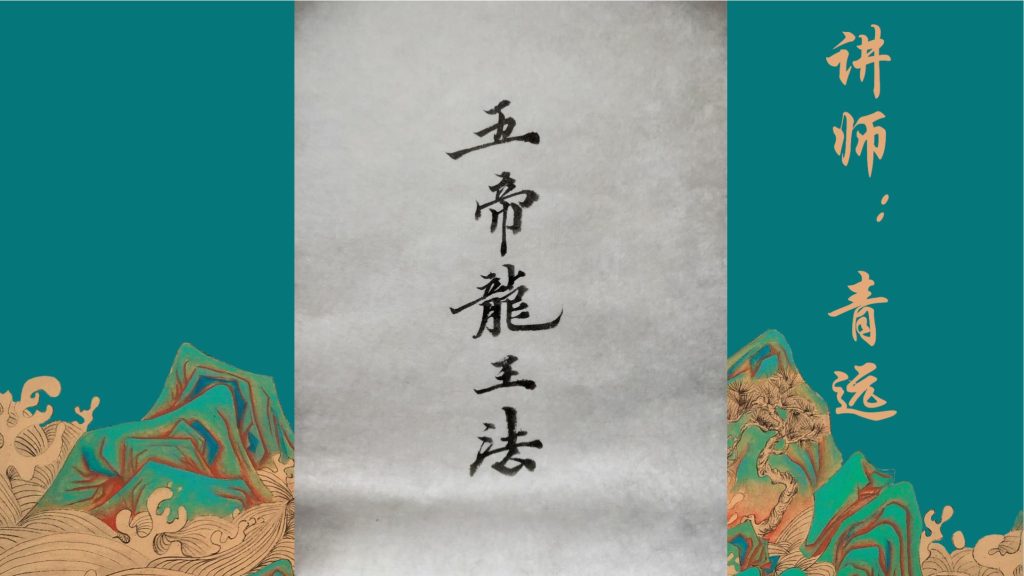 五帝龍王法
讲师：青远